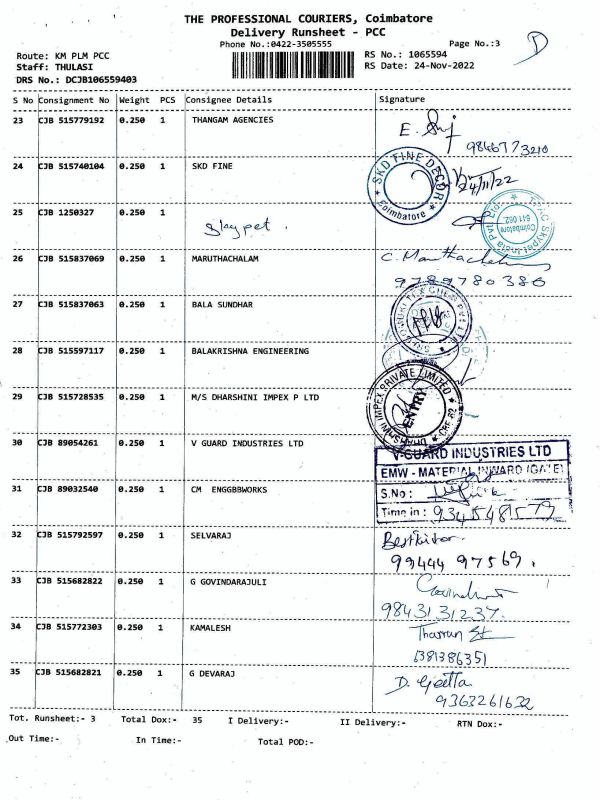 THE PROFESSIONAL COURIERS, Coimbatore
Delivery Runsheet - PCC
Phone No.:0422-3505555
Page No.:3
D
Route: KM PLM PCC
RS No.: 1065594
Staff: THULASI
RS Date: 24-Nov-2022
DRS No.: DCJB106559403
S No Consignment No Weight PCS Consignee Details Signature
23 CJB 515779192 0.250 1 THANGAM AGENCIES
E.
9846773210
24 CJB 515740104 0.250 1 SKD FINE
SKD FINE DECOR
Coimbatore
24/11/22
25 CJB 1250327 0.250 1
Skypet.
Skypet India Pvt. Ltd.
Coimbatore
641 062
26 CJB 515837069 0.250 1 MARUTHACHALAM
C. Maruthachalam
9789780386
27 CJB 515837063 0.250 1 BALA SUNDHAR
28 CJB 515597117 0.250 1 BALAKRISHNA ENGINEERING
29 CJB 515728535 0.250 1 M/S DHARSHINI IMPEX P LTD
DHARSHINI IMPEX PRIVATE LIMITED
ENTRY
30 CJB 89054261 0.250 1 V GUARD INDUSTRIES LTD
V-GUARD INDUSTRIES LTD
EMW - MATERIAL INWARD (GATE)
31 CJB 89032540 0.250 1 CM ENGGBBWORKS
S.No :
Time in : 9345481577
32 CJB 515792597 0.250 1 SELVARAJ
99444 97569.
33 CJB 515682822 0.250 1 G GOVINDARAJULI
98431 31237.
34 CJB 515772303 0.250 1 KAMALESH
Tharun
6381386351
35 CJB 515682821 0.250 1 G DEVARAJ
D. Geetta
9363261632
Tot. Runsheet:- 3 Total Dox:- 35 I Delivery:- II Delivery:- RTN Dox:-
Out Time:- In Time:- Total POD:-